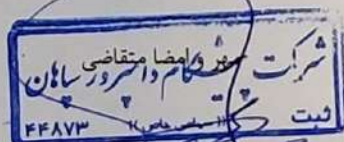 مهر و امضا متقاضی
شرکت پیشگام دامپرور سپاهان
(( سهامی خاص ))
ثبت ۴۴۸۷۳